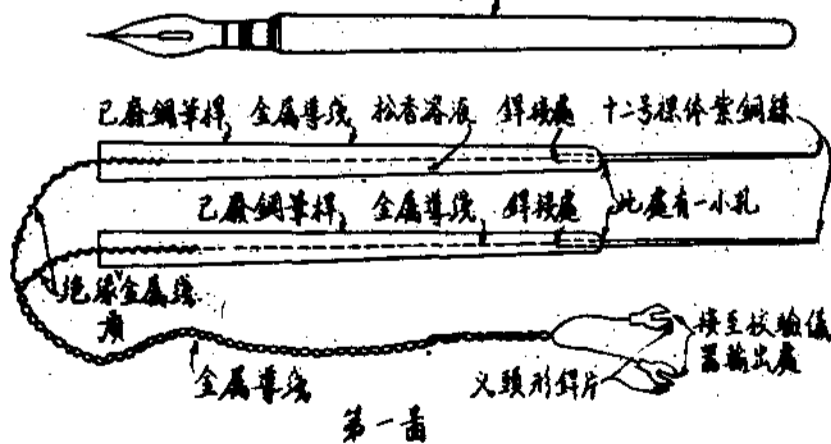 已廢鋼筆桿 金属導线 松香溶液 銲接處 十二号裸体紫銅絲
已廢鋼筆桿 金属導线 銲接處 此處有一小孔
绝缘金属线
金属導线
义頭形銲片
接至校驗儀
器輸出處
第一畐